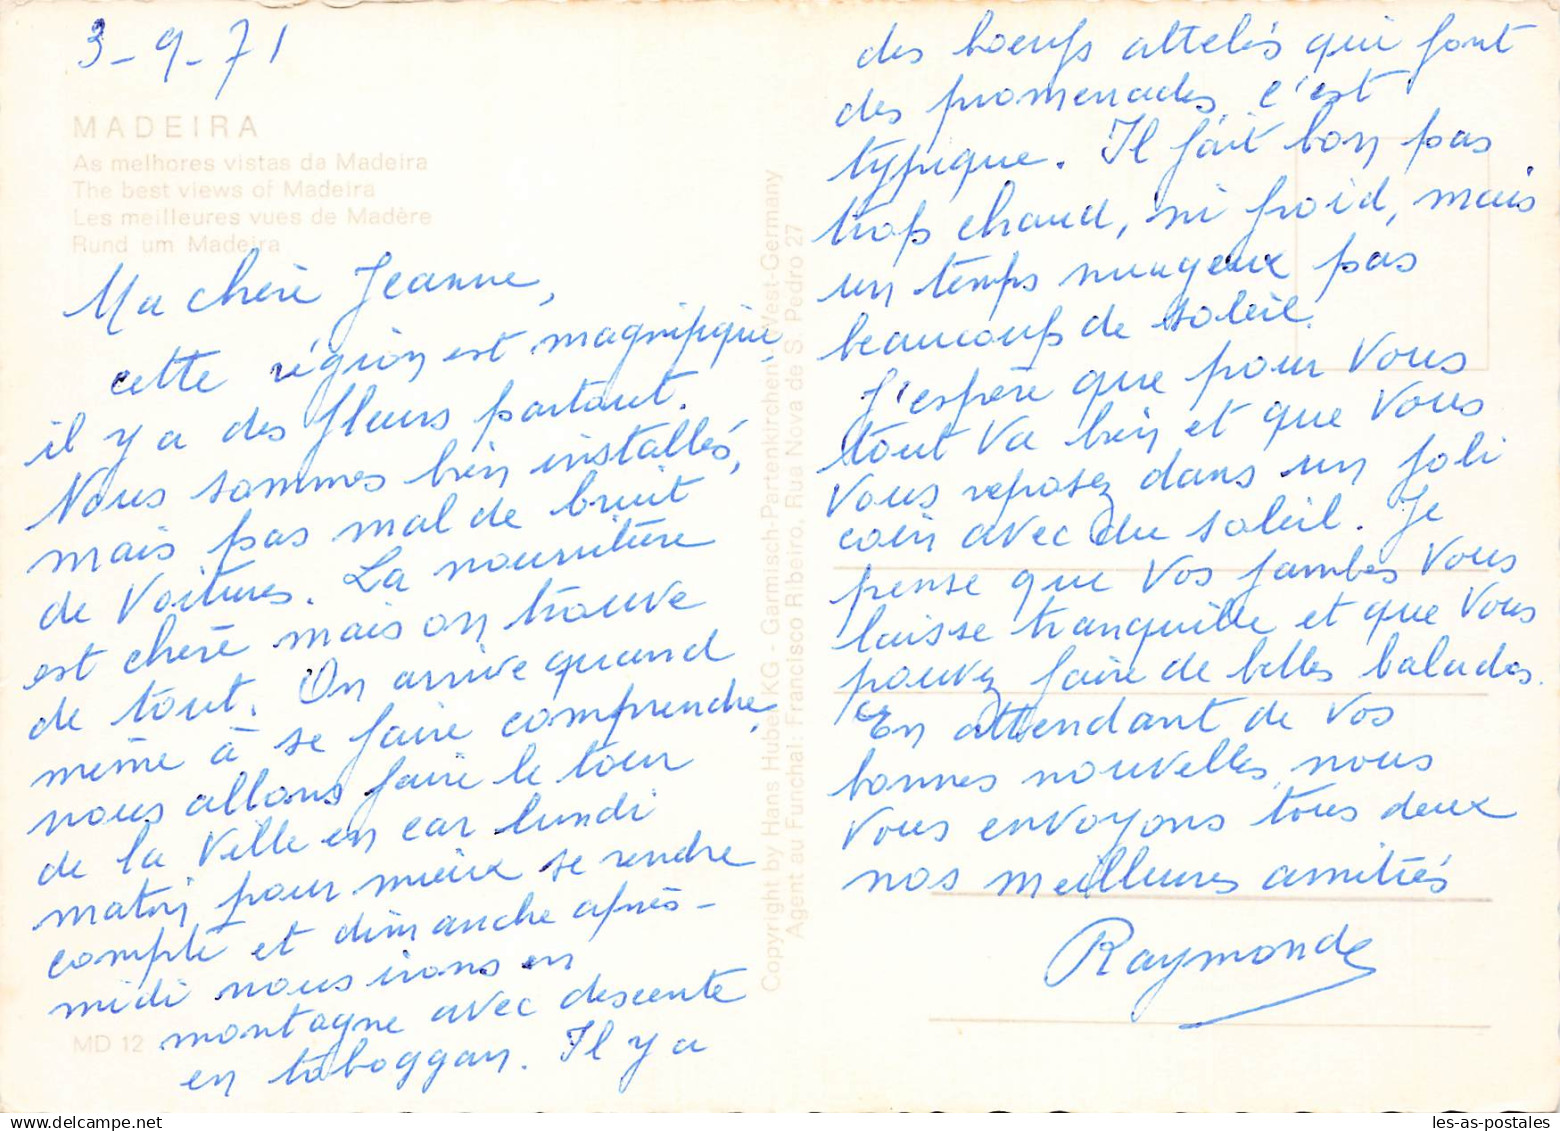 3-9-71
MADEIRA
As melhores vistas da Madeira
The best views of Madeira
Les meilleures vues de Madère
Rund um Madeira
Ma chère Jeanne,
cette région est magnifique,
il y a des fleurs partout.
Nous sommes bien installés,
mais pas mal de bruit
de voitures. La nourriture
est chère mais on trouve
de tout. On arrive quand
même à se faire comprendre,
nous allons faire le tour
de la ville en car lundi
matin pour mieux se rendre
compte et dimanche après-
midi nous irons en
montagne avec descente
en toboggan. Il y a
MD 12
Copyright by Hans Huber KG - Garmisch-Partenkirchen - West-Germany
Agent au Funchal: Francisco Ribeiro, Rua Nova de S. Pedro 27
des boeufs attelés qui font
des promenades, c'est
typique. Il fait bon pas
trop chaud, ni froid, mais
un temps nuageux pas
beaucoup de soleil.
J'espère que pour vous
tout va bien et que vous
vous reposez dans un joli
coin avec du soleil. Je
pense que vos jambes vous
laisse tranquille et que vous
pouvez faire de belles balades.
En attendant de vos
bonnes nouvelles, nous
vous envoyons tous deux
nos meilleures amitiés
Raymonde
les-as-postales